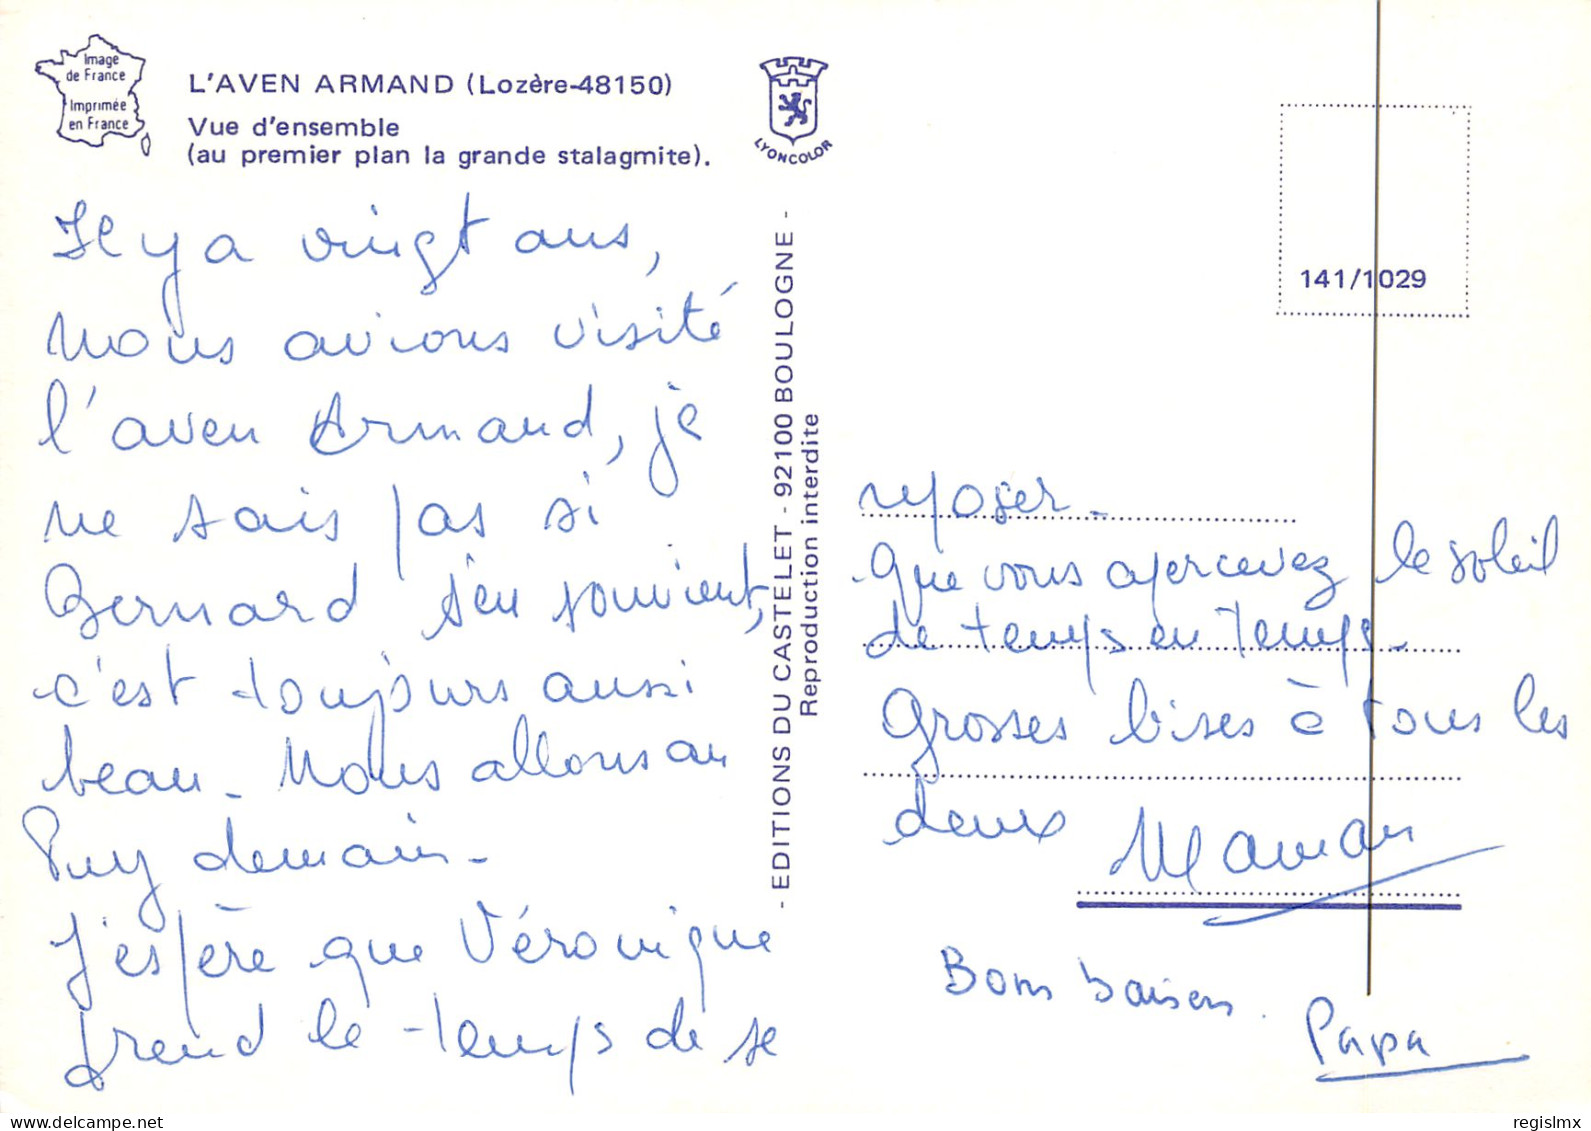 Image
de France
Imprimée
en France
L'AVEN ARMAND (Lozère-48150)
Vue d'ensemble
(au premier plan la grande stalagmite).
LYONCOLOR
141/1029
Il y a vingt ans,
nous avions visité
l'aven Armand, je
ne sais pas si
Bernard s'en souvient,
c'est toujours aussi
beau. Nous allons au
Puy demain.
J'espère que Véronique
prend le temps de se
- EDITIONS DU CASTELET - 92100 BOULOGNE -
Reproduction interdite
reposer.
Que vous apercevez le soleil
de temps en temps.
Grosses bises à tous les
deux
Maman
Bons baisers.
Papa
regislmx